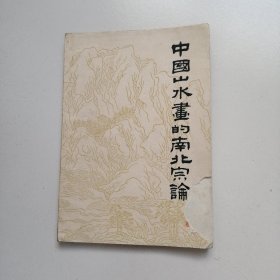 中國山水畫的南北宗論